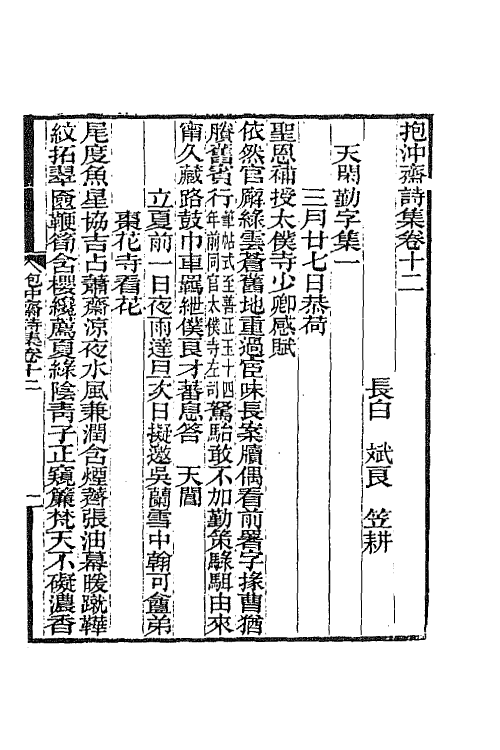 抱沖齋詩集卷十二
長白　斌良　笠耕
天閑勤字集一
三月廿七日恭荷
聖恩補授太僕寺少卿感賦
依然官廨綠雲蒼舊地重過宦味長案牘偶看前署字掾曹猶
賸舊賓行筆帖式至善正玉十四年前同官太僕寺左司駑駘敢不加勤策騄駬由來
甯久藏路鼓巾車羈紲僕良才蕃息答　天閑
立夏前一日夜雨達旦次日擬邀吳蘭雪中翰可盦弟
棗花寺看花
尾度魚星協吉占蕭齋涼夜水風兼潤含煙薺張油幕暖蹴鞾
紋拓翠奩鞭筍含櫻纔薦夏綠陰青子正窺簾梵天不礙濃香
抱沖齋詩集卷十二　一